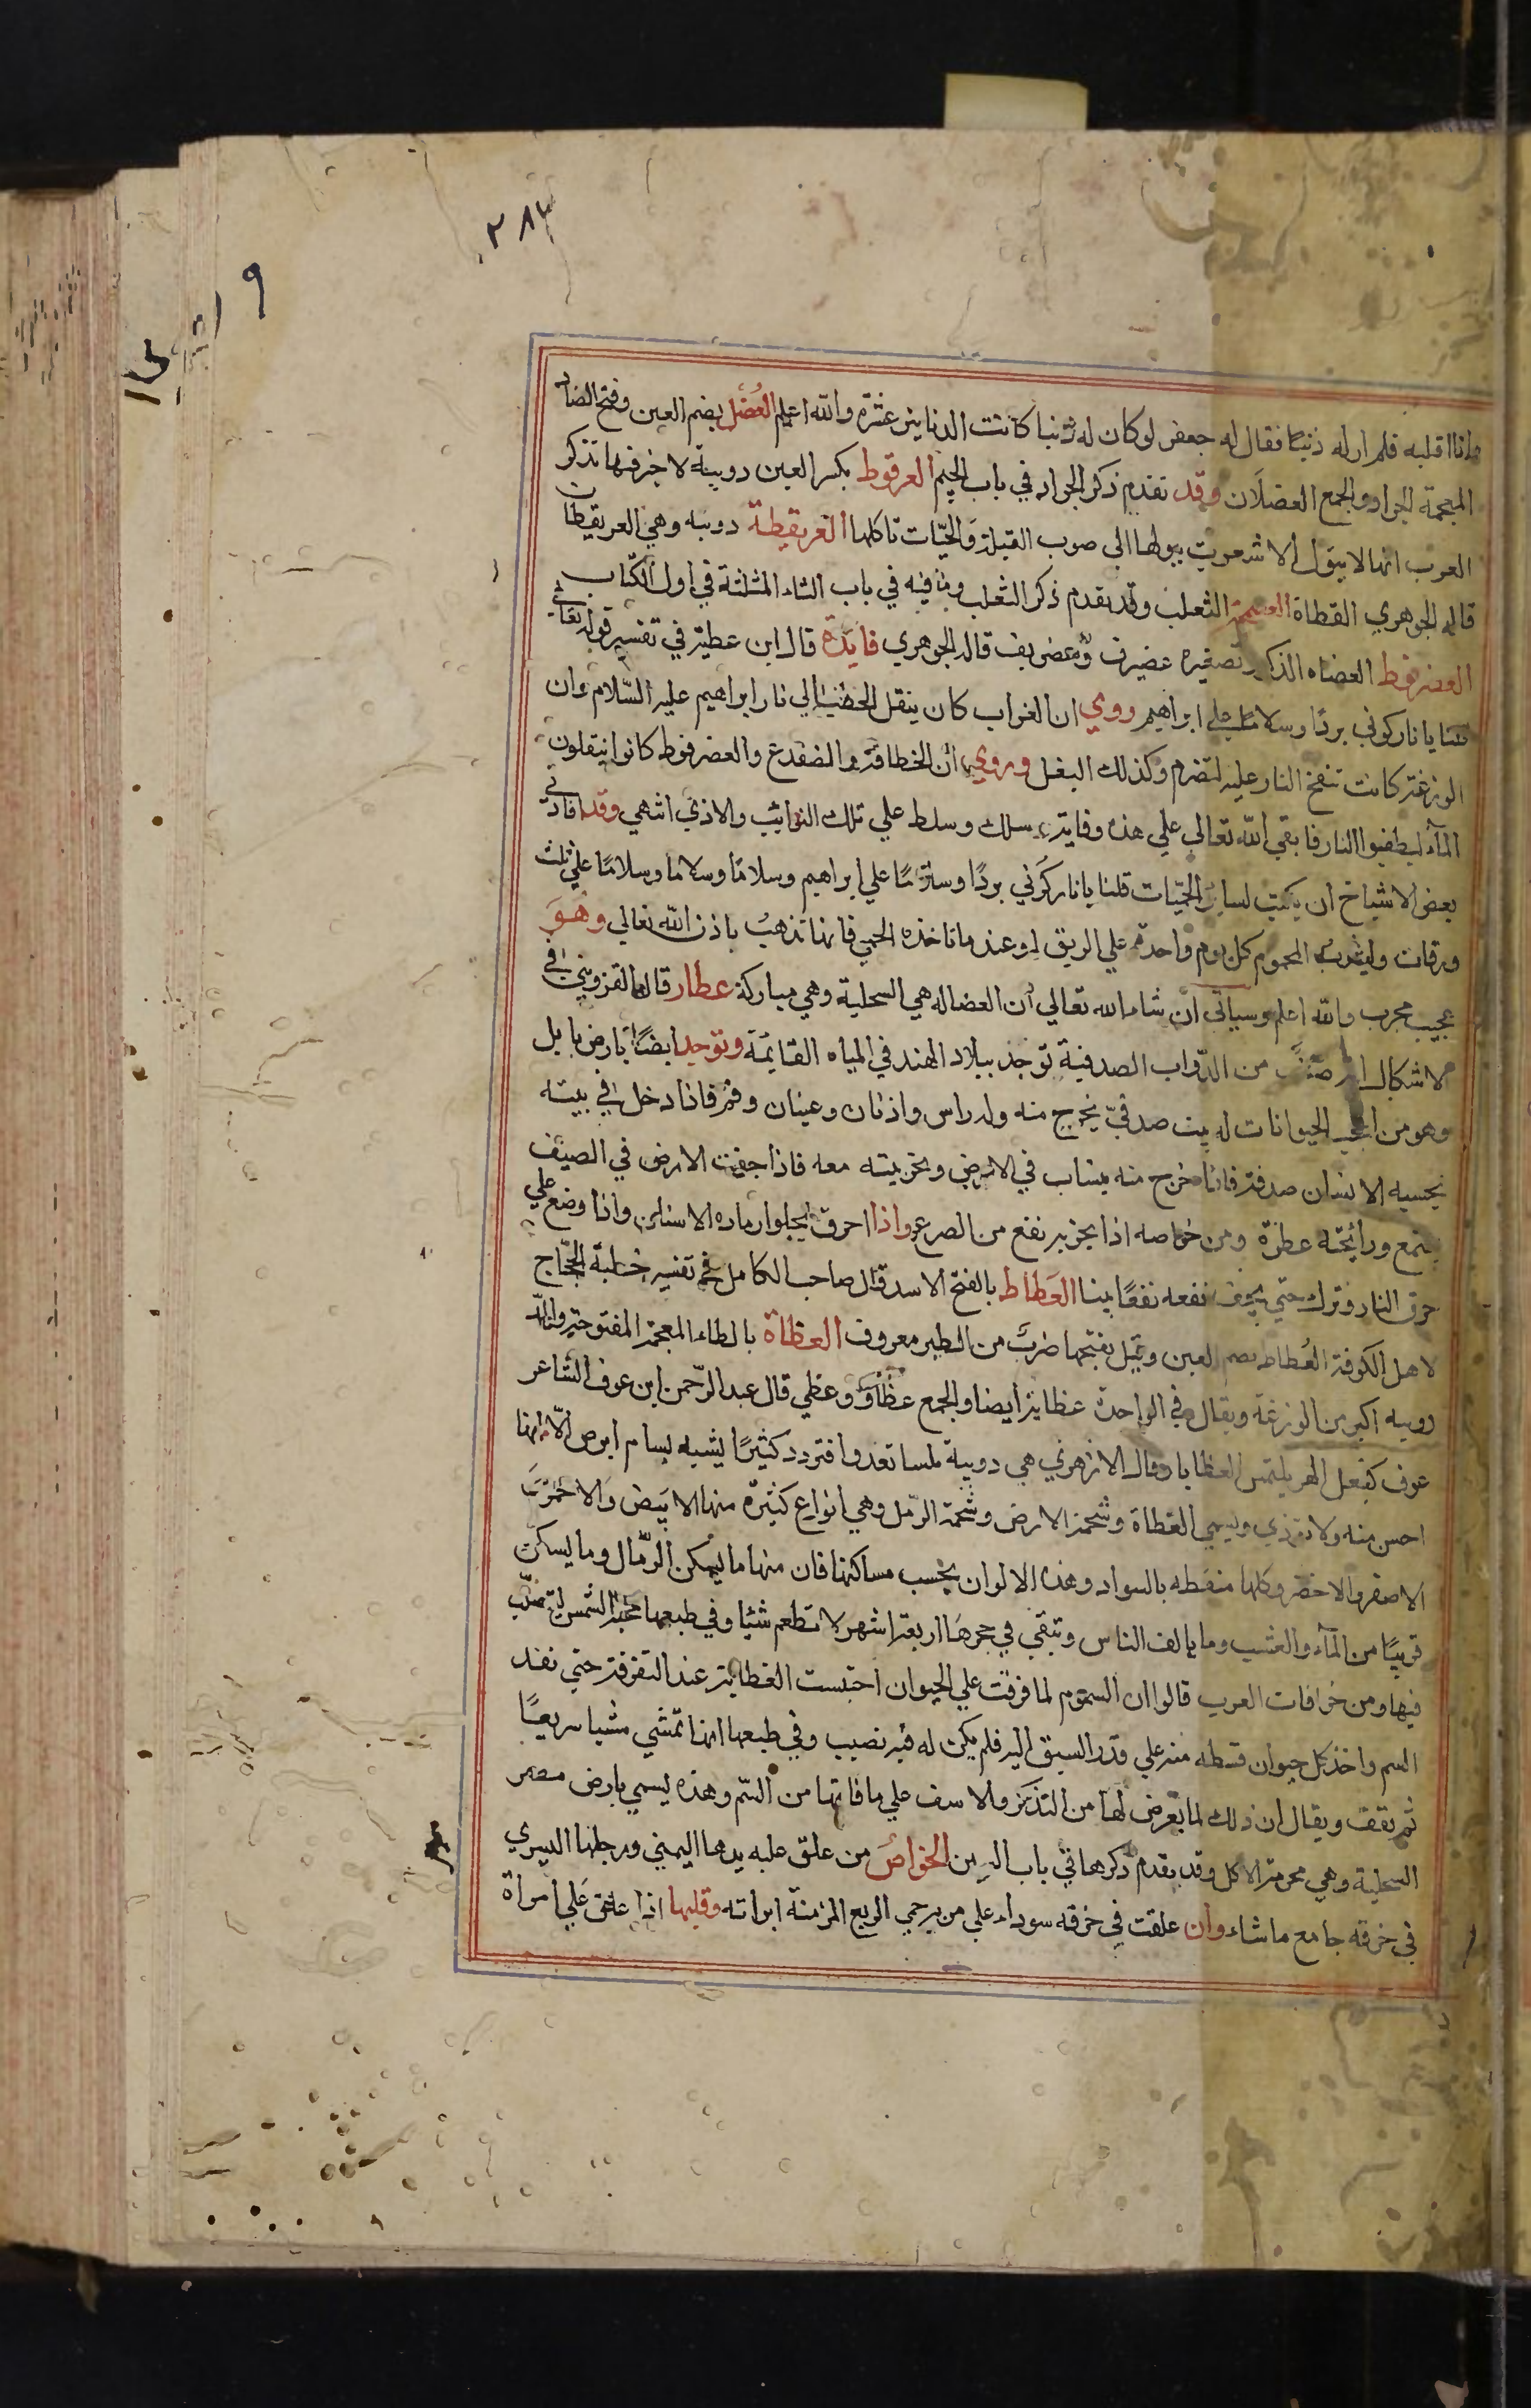 ٢٨٤
وانا اقلبه فلم ار له ذنبًا فقال له جعفر لو كان له ذنبا كانت الدنانير عشرة والله اعلم العُضَل بضم العين وفتح الضاد
المعجمة الجراد والجمع العضلان وقد تقدم ذكر الجراد في باب الجيم العرقوط بكسر العين دويبة لا خير فيها تذكر
العرب انها لا يبول الا شعرت ببولها الى صوب القبلة والحيّات تاكلها العريقيطة دويبه وهي العريقيطان
قاله الجوهري القطاة الثعلب وقد تقدم ذكر الثعلب وما فيه في باب الثاء المثلثة في اول الكتاب
العضرفوط العضاه الذكر وتصغيره عضيرف وعضريف قاله الجوهري فايدة قال ابن عطية في تفسير قوله تعالى
قلنا يا نار كوني بردًا وسلامًا على ابراهيم روي ان الغراب كان ينقل الحطب الي نار ابراهيم عليه السّلام وان
الوزغة كانت تنفخ النار عليه لتضرم وكذلك البغل وروي ان الخطافة والضفدع والعضرفوط كانوا ينقلون
المآء ليطفيوا النار فابقي الله تعالى علي هذه وقاية وسلط علي تلك النوائب والاذي انتهي وقد افادني
بعض الاشياخ ان يكتب لساير الحمّيات قلنا يا نار كوني بردًا وسلامًا علي ابراهيم وسلامًا وسلاما وسلامًا علي ثلث
ورقات وليشرب المحموم كل يوم واحدة علي الريق او عند ما تاخذه الحمي فانها تذهب باذن الله تعالي وهو
عجيب مجرب والله اعلم وسياتى ان شاء الله تعالي ان العضاله هي السحلية وهي مباركة عطار قاله القزويني في
الاشكال انه صنف من الدّواب الصدفية توجد ببلاد الهند في المياه القايمة وتوجد ايضًا بارض بابل
وهو من اعجب الحيوانات له بيت صدفيّ يخرج منه وله راس واذنان وعينان وفم فاذا دخل في بيته
يحسبه الانسان صدفة فاذا خرج منه ينساب في الارض ويجر بيته معه فاذا جفت الارض في الصيف
يجتمع ورائحته عطرة ومن خواصه اذا بخر به نفع من الصرع واذا احرق يجلوا رماده الاسنان واذا وضع علي
حرق النار وترك حتي يجف نفعه نفعًا بينا العَطاط بالفتح الاسد قال صاحب الكامل في تفسير خطبة الحجّاج
لاهل الكوفة العُطاط بضم العين وقيل بفتحها ضرب من الطير معروف العظاة بالطاء المعجمة المفتوحة والمد
دويبه اكبر من الوزغة ويقال في الواحدة عظاية ايضا والجمع عظاء وعظي قال عبد الرّحمن ابن عوف الشاعر
عوف كفعل الهر يلتمس العظايا وقال الازهري هي دويبة ملسا تعدوا فتردد كثيرًا يشبه بسام ابرص الّا انها
احسن منه ولا توذي ويسمي العظاة وشحمة الارض وشحمة الرّمل وهي انواع كثيرة منها الابيض والاحمر و
الاصفر والاخضر وكلها منقطه بالسواد وهذه الالوان بحسب مساكنها فان منها ما يسكن الرّمال وما يسكن
قريبًا من المآء والعشب وما يالف الناس وتبقي في جحرها اربعة اشهر لا تطعم شيًا وفي طبعها محبة الشمس لتتصلّب
فيها ومن خرافات العرب قالوا ان السموم لما فرقت علي الحيوان احتبست العظاية عند التفرقة حتي نفد
السم واخذ كل حيوان قسطه منه علي قدر السبق اليه فلم يكن له فيه نصيب وفي طبعها انها تمشي مشيا سريعًا
ثم تقف ويقال ان ذلك لما يعرض لها من التذكر والاسف علي ما فاتها من السّم وهذه يسمي بارض مصر
السحلية وهي محرمة الاكل وقد تقدم ذكرها في باب السين الخواص من علق عليه يدها اليمني ورجلها اليسري
في خرقه جامع ما شاء وان علقت في خرقه سوداء علي من به حمي الربع المزمنة ابراته وقلبها اذا علق علي امراة